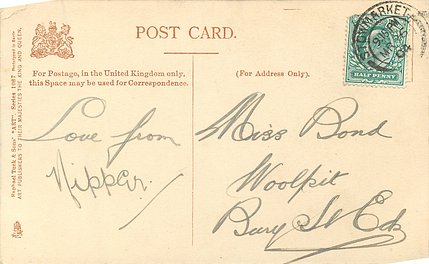 POST CARD.
For Postage, in the United Kingdom only,
this Space may be used for Correspondence.
(For Address Only).
Love from
Nipper.
Miss Bond
Woolpit
Bury St Eds
HALF PENNY
Raphael Tuck & Sons' "ART" Series 1087
ART PUBLISHERS TO THEIR MAJESTIES THE KING AND QUEEN.